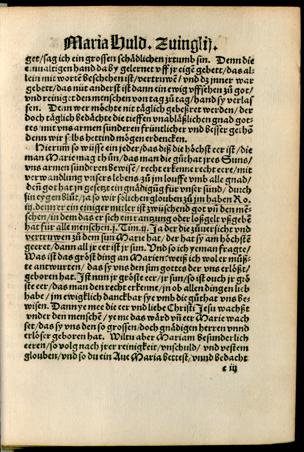 Maria Huld. Zuinglij.
get/sag ich ein grossen schädlichen jrtumb sin. Denn die
einualtigen hand da by gelernet vff jr eigē gebett/das al-
lein mit wortē beschehen ist/vertruwē/vnd dz inner war
gebett/das nüt anderst ist dann ein ewig vffsehen zů got/
vnd reiniget den menschen von tag zů tag/hand sy verlas
sen. Dem wer möchte nit täglich gebessret werden/der
doch täglich bedächte die tieffen vnabläßlichen gnad got-
tes mit vns armen sündren
früntlicher vnd besser
denn wir sælbs hettind mögen erdencken.
Hierum so wüsse ein jeder/das diß die höchst eer ist/die
man Marie mag thůn/das man die gůthat jres Suns/
vns armen sündren bewisē/recht erkenne recht eere/mit
verwandlung vnsers lebens zů jm louffe vmb alle gnad/
den got hat jn gesetzt ein gnädigūg für vnser sünd/durch
sin eygen blůt/ja so wir solichen glouben zů jm haben Ro.
iij. denn er ein einiger mitler ist zwüschend got vn den mē
schen/in dem das er sich ein rantzung oder loßgelt vßgebē
hat für alle menschen.j. Tim.ij. Ja der die zůuersicht vnd
vertruwen zů dem sun Marie hat/der hat sy am höchstē
geeret/dann all jr eer ist jr sun. Vnd so ich yeman fragte/
Was ist das gröst ding an Marien? weiß ich wol er müß-
te antwurten/das sy vns den sun gottes der vns erlößt/
geboren hat. Ist nun jr gröste eer jr sun/so ist ouch jr grö
ste eer/das man den recht erkenne/jn ob allen dingen lieb
habe/jm ewigklich danckbar sye vmb die gůthat vns be-
wisen. Dann ye mee die eer vnd liebe Christi Jesu wachßt
vnder den menschē/ye me das wärd vn eer Marie wach
set/das sy vns den so grossen/doch gnädigen herren vnnd
erlöser geboren hat. Wiltu aber Mariam besunderlich
eeren/so volg nach jrer reinigkeit/vnschuld/vnd vestem
glouben/vnd so du ein Aue Maria bettest/vnnd bedacht
c iij